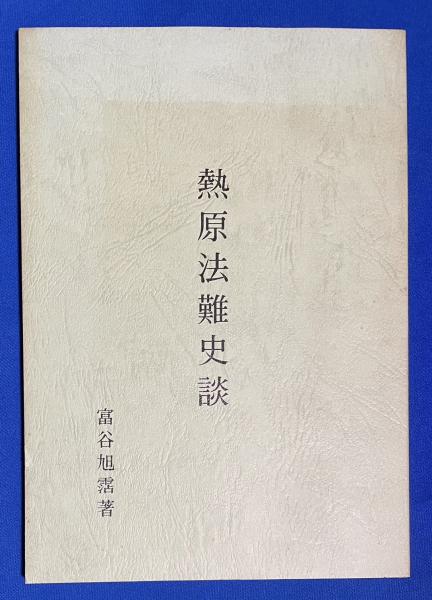 熱原法難史談
富谷旭霑著